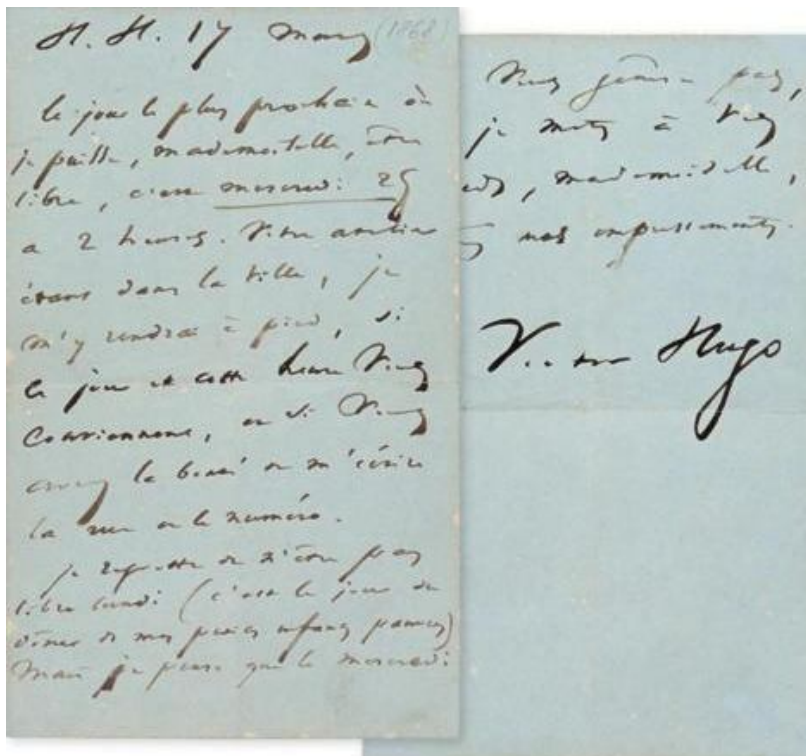 H. H. 17 mars (1868)
le jour le plus prochain où
je puisse, mademoiselle, être
libre, c'est mercredi 25
à 2 heures. Votre atelier
étant dans la ville, je
m'y rendrai à pied, si
ce jour et cette heure vous
conviennent, et si vous
avez la bonté de m'écrire
la rue et le numéro.
je regrette de n'être pas
libre lundi (c'est le jour du
dîner de mes petits enfants pauvres)
Mais je pense que le mercredi
vous gênera pas,
je mets à vos
eds, mademoiselle,
mes empressements.
Victor Hugo